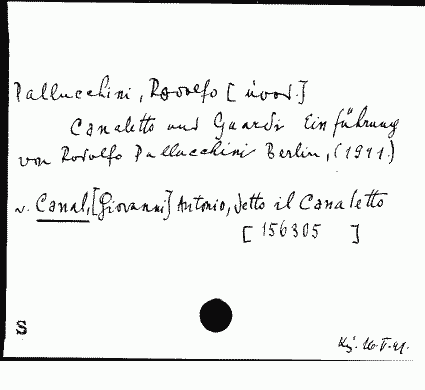 Pallucchini, Rodolfo [úvod.]
Canaletto und Guardi Einführung
von Rodolfo Pallucchini Berlin, (1941.)
v. Canal, [Giovanni] Antonio, detto il Canaletto
[156305 ]
S